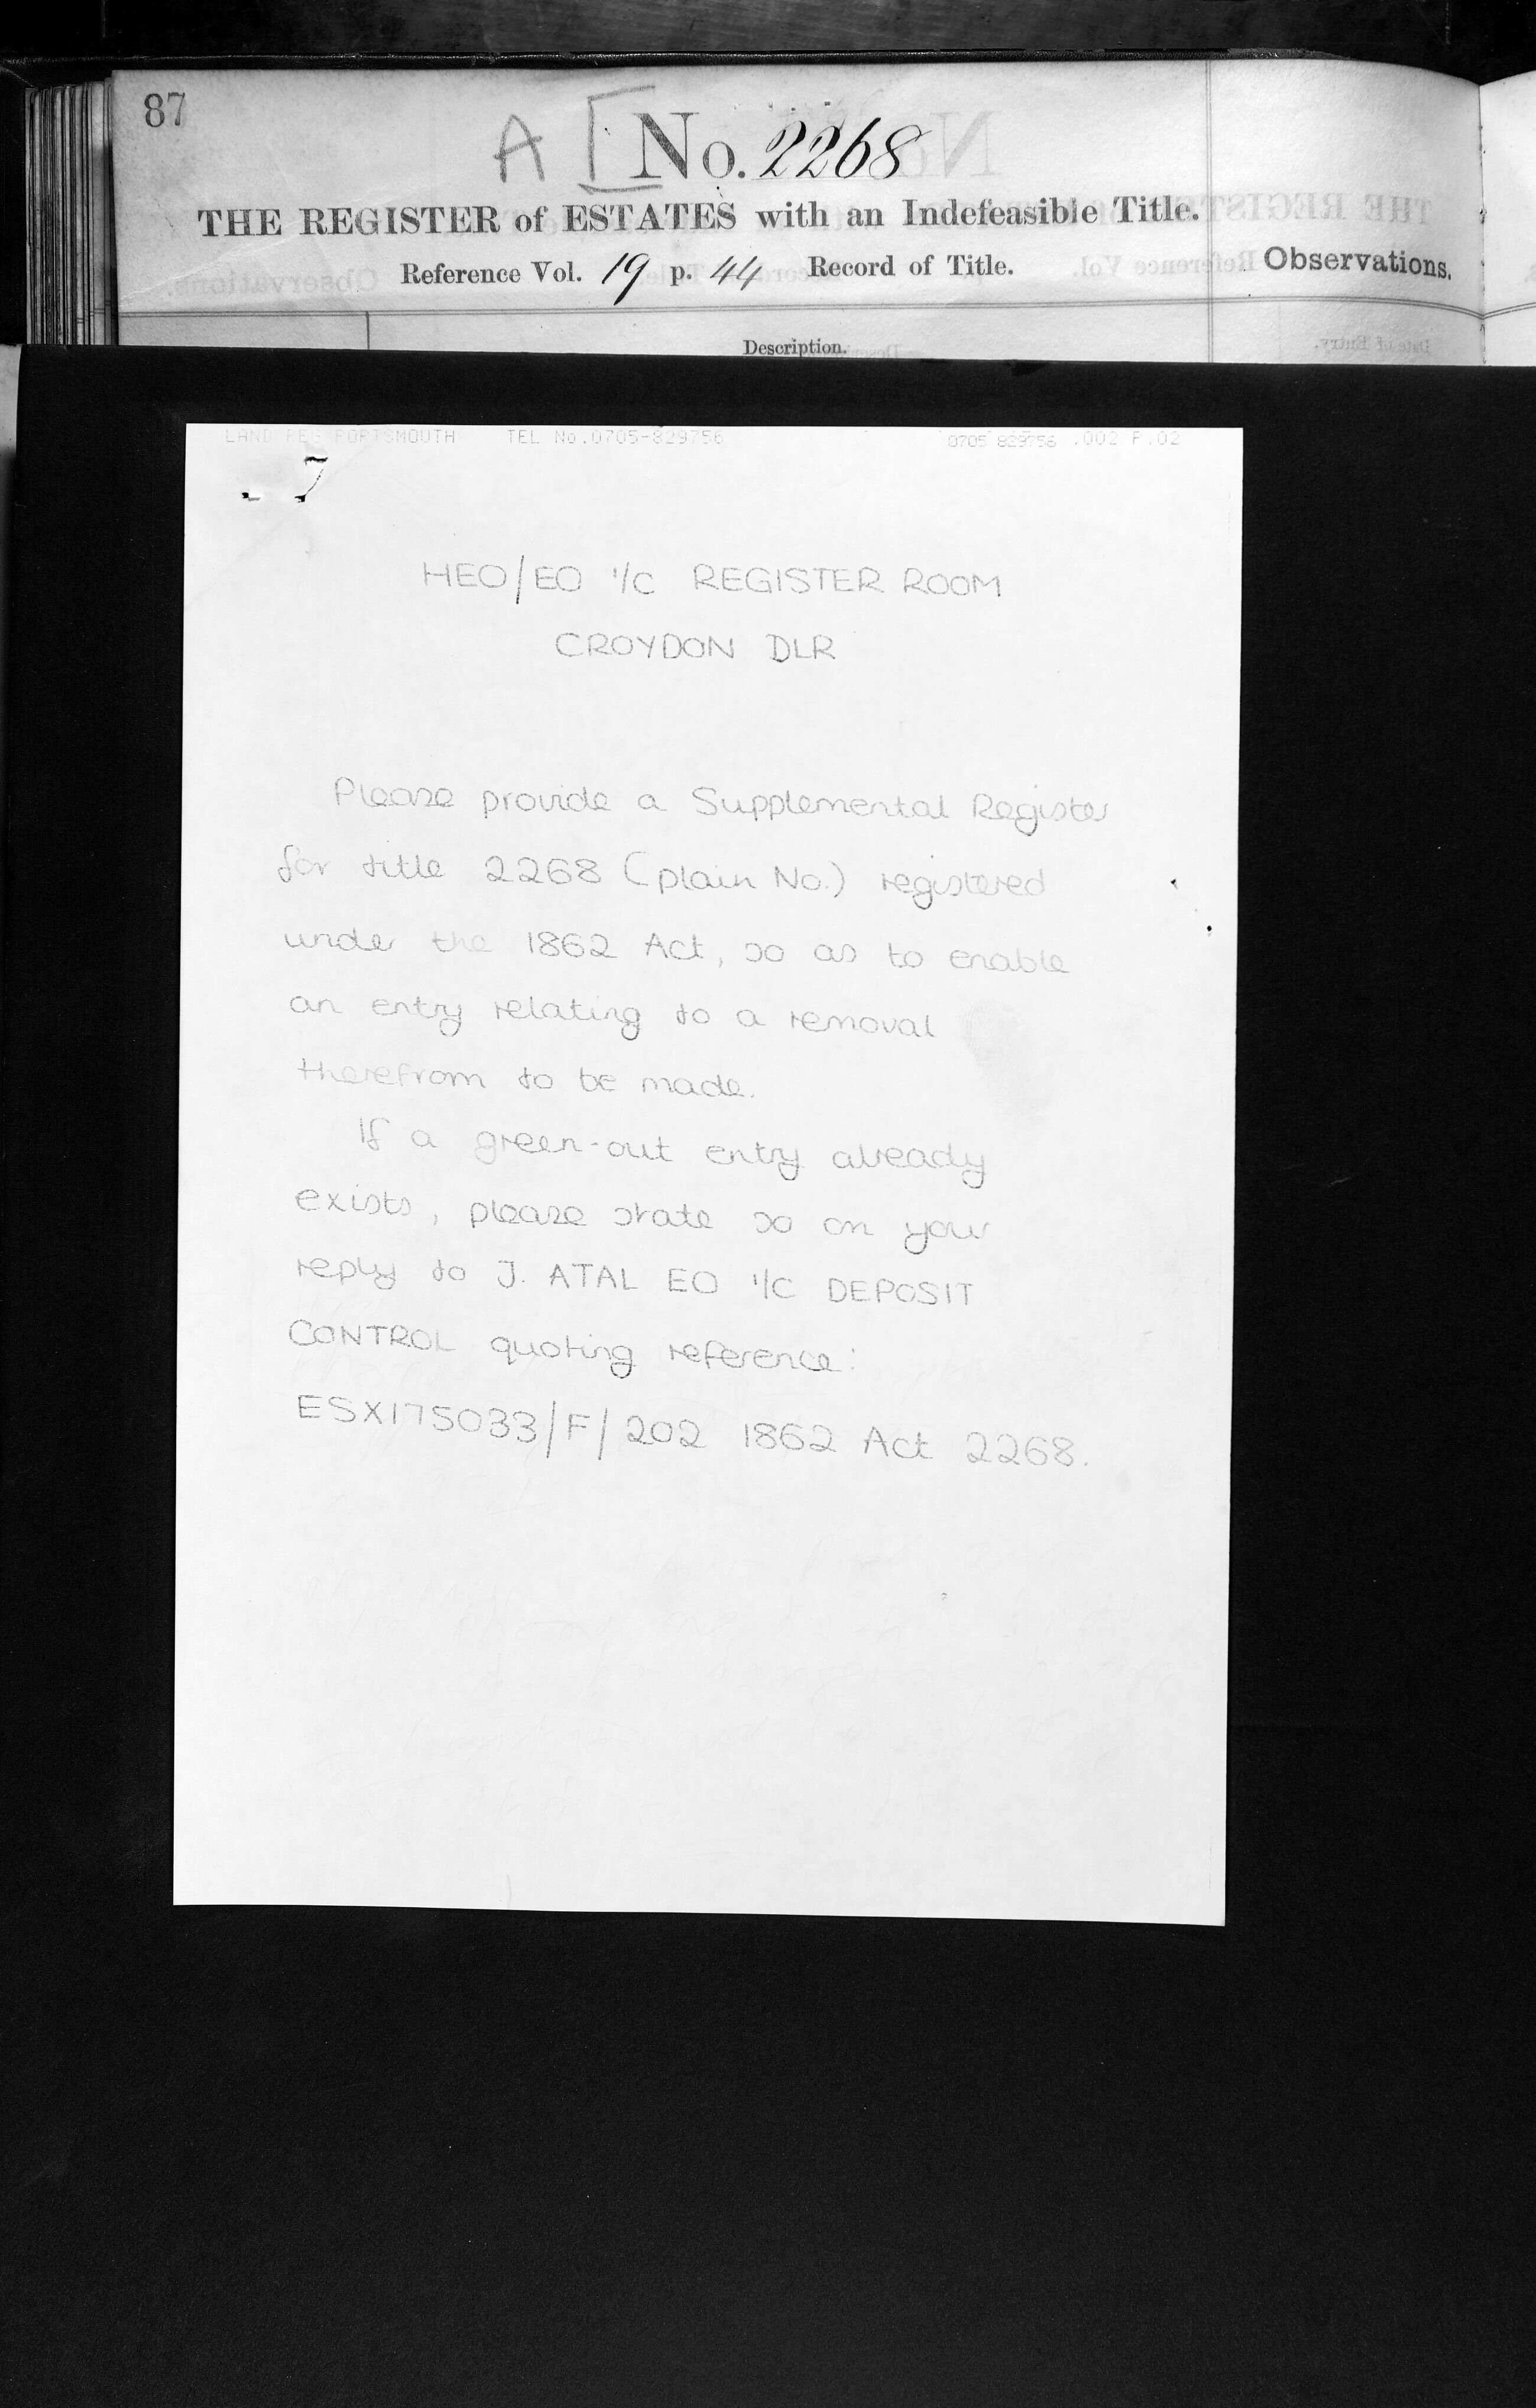 87
A [ No. 2268
THE REGISTER of ESTATES with an Indefeasible Title.
Reference Vol. 19 p. 44 Record of Title.
Observations.
Description.
LAND REG PORTSMOUTH TEL No.0705-829756 0705 829756 .002 P.02
HEO/EO I/C REGISTER ROOM
CROYDON DLR
Please provide a Supplemental Register
for title 2268 (plain No.) registered
under the 1862 Act, so as to enable
an entry relating to a removal
therefrom to be made.
If a green-out entry already
exists, please state so on your
reply to J. ATAL EO I/C DEPOSIT
CONTROL quoting reference:
ESX175033/F/202 1862 Act 2268.